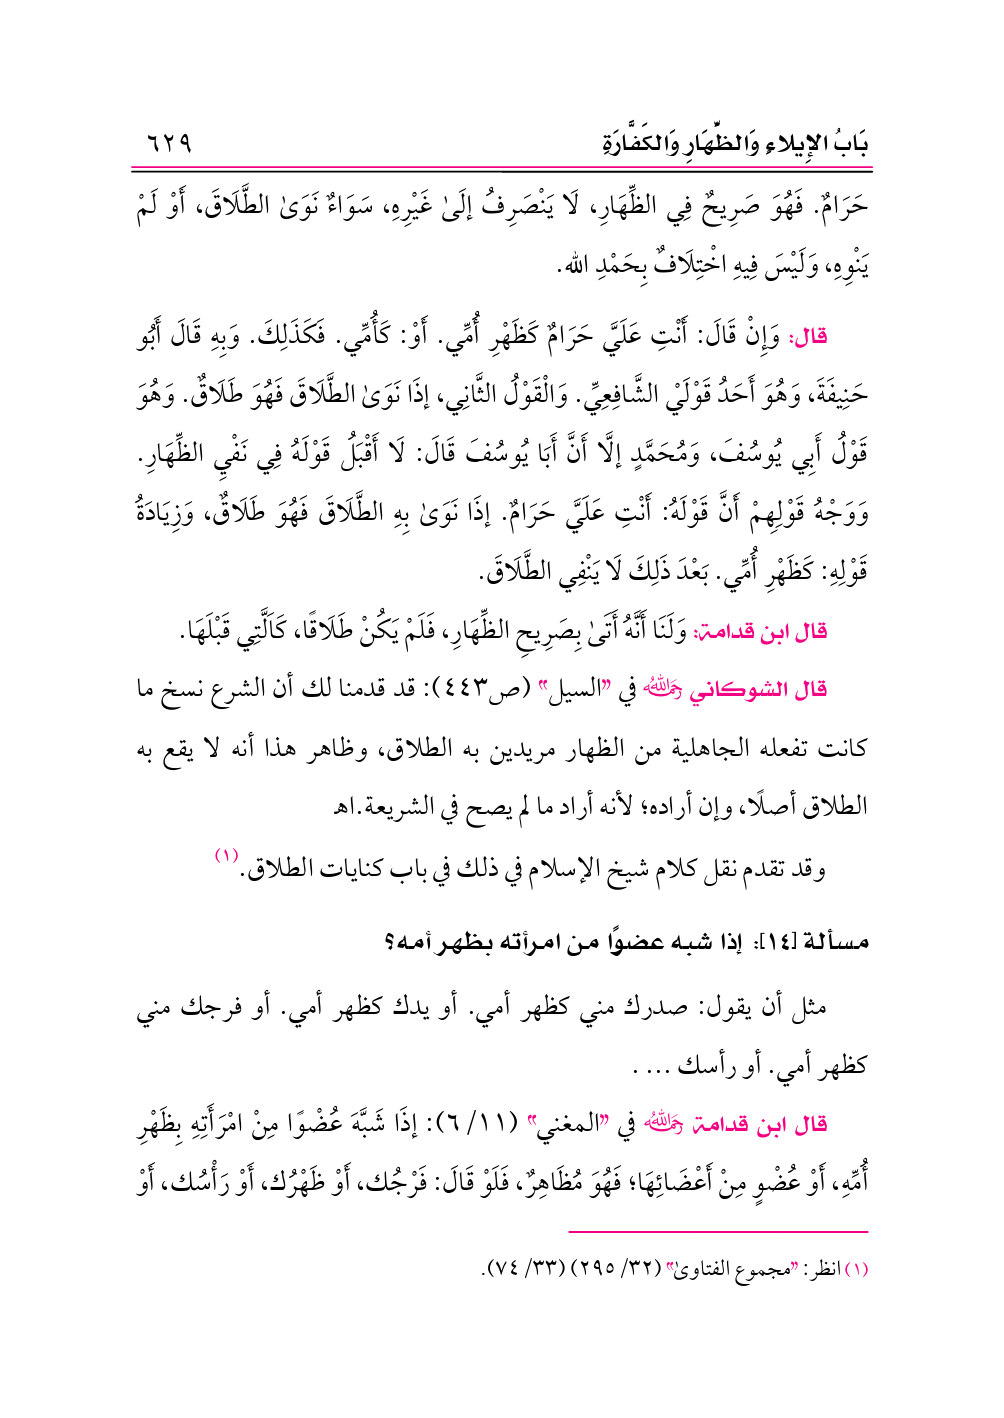 بَابُ الإِيلاءِ وَالظِّهَارِ وَالكَفَّارَةِ ٦٢٩
حَرَامٌ. فَهُوَ صَرِيحٌ فِي الظِّهَارِ، لَا يَنْصَرِفُ إلَىٰ غَيْرِهِ، سَوَاءٌ نَوَىٰ الطَّلَاقَ، أَوْ لَمْ
يَنْوِهِ، وَلَيْسَ فِيهِ اخْتِلَافٌ بِحَمْدِ الله.
قال: وَإِنْ قَالَ: أَنْتِ عَلَيَّ حَرَامٌ كَظَهْرِ أُمِّي. أَوْ: كَأُمِّي. فَكَذَلِكَ. وَبِهِ قَالَ أَبُو
حَنِيفَةَ، وَهُوَ أَحَدُ قَوْلَيْ الشَّافِعِيِّ. وَالْقَوْلُ الثَّانِي، إذَا نَوَىٰ الطَّلَاقَ فَهُوَ طَلَاقٌ. وَهُوَ
قَوْلُ أَبِي يُوسُفَ، وَمُحَمَّدٍ إلَّا أَنَّ أَبَا يُوسُفَ قَالَ: لَا أَقْبَلُ قَوْلَهُ فِي نَفْيِ الظِّهَارِ.
وَوَجْهُ قَوْلِهِمْ أَنَّ قَوْلَهُ: أَنْتِ عَلَيَّ حَرَامٌ. إذَا نَوَىٰ بِهِ الطَّلَاقَ فَهُوَ طَلَاقٌ، وَزِيَادَةُ
قَوْلِهِ: كَظَهْرِ أُمِّي. بَعْدَ ذَلِكَ لَا يَنْفِي الطَّلَاقَ.
قال ابن قدامة: وَلَنَا أَنَّهُ أَتَىٰ بِصَرِيحِ الظِّهَارِ، فَلَمْ يَكُنْ طَلَاقًا، كَاَلَّتِي قَبْلَهَا.
قال الشوكاني رحمه الله في "السيل" (ص٤٤٣): قد قدمنا لك أن الشرع نسخ ما
كانت تفعله الجاهلية من الظهار مريدين به الطلاق، وظاهر هذا أنه لا يقع به
الطلاق أصلًا، وإن أراده؛ لأنه أراد ما لم يصح في الشريعة.اهـ
وقد تقدم نقل كلام شيخ الإسلام في ذلك في باب كنايات الطلاق.(١)
مسألة [١٤]: إذا شبه عضوًا من امرأته بظهر أمه؟
مثل أن يقول: صدرك مني كظهر أمي. أو يدك كظهر أمي. أو فرجك مني
كظهر أمي. أو رأسك ... .
قال ابن قدامة رحمه الله في "المغني" (١١/ ٦): إذَا شَبَّهَ عُضْوًا مِنْ امْرَأَتِهِ بِظَهْرِ
أُمِّهِ، أَوْ عُضْوٍ مِنْ أَعْضَائِهَا؛ فَهُوَ مُظَاهِرٌ، فَلَوْ قَالَ: فَرْجُك، أَوْ ظَهْرُك، أَوْ رَأْسُك، أَوْ
(١) انظر: "مجموع الفتاوىٰ" (٣٢/ ٢٩٥) (٣٣/ ٧٤).